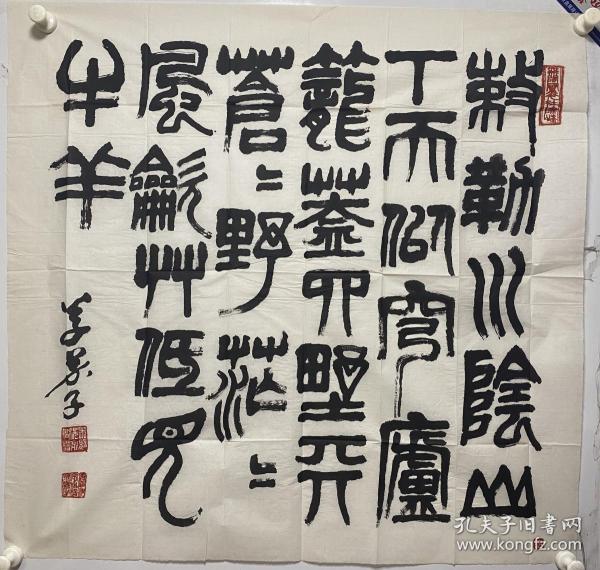 敕勒川陰山
丅天似穹廬
籠蓋四壄天
蒼〻野茫〻
風龡艸低見
牛羊
孔夫子旧书网
www.kongfz.com